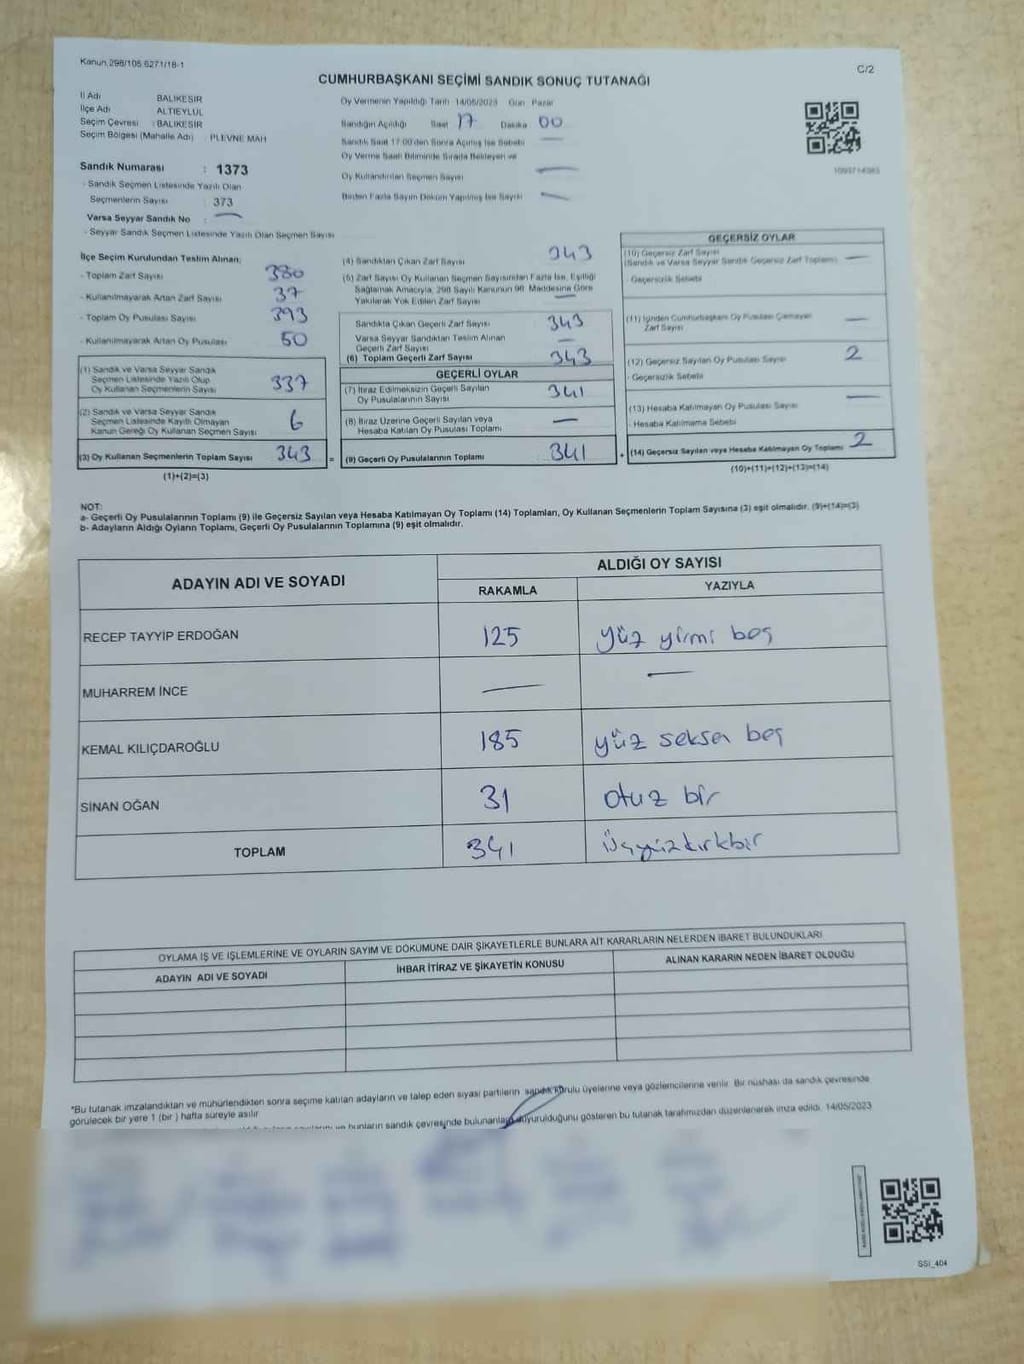 Kanun 298/105 6271/18-1
C/2
CUMHURBAŞKANI SEÇİMİ SANDIK SONUÇ TUTANAĞI
İl Adı BALIKESİR
İlçe Adı ALTIEYLÜL
Seçim Çevresi : BALIKESİR
Seçim Bölgesi (Mahalle Adı) : PLEVNE MAH
Sandık Numarası : 1373
- Sandık Seçmen Listesinde Yazılı Olan
Seçmenlerin Sayısı : 373
Varsa Seyyar Sandık No : —
- Seyyar Sandık Seçmen Listesinde Yazılı Olan Seçmen Sayısı
Oy Vermenin Yapıldığı Tarih 14/05/2023 Gün Pazar
Sandığın Açıldığı Saat 17 Dakika 00
Sandık Saat 17:00'den Sonra Açılmış İse Sebebi —
Oy Verme Saati Bitiminde Sırada Bekleyen ve
Oy Kullandırılan Seçmen Sayısı —
Birden Fazla Sayım Döküm Yapılmış İse Sayısı —
İlçe Seçim Kurulundan Teslim Alınan;
- Toplam Zarf Sayısı 380
- Kullanılmayarak Artan Zarf Sayısı 37
- Toplam Oy Pusulası Sayısı 393
- Kullanılmayarak Artan Oy Pusulası 50
(1) Sandık ve Varsa Seyyar Sandık
Seçmen Listesinde Yazılı Olup
Oy Kullanan Seçmenlerin Sayısı 337
(2) Sandık ve Varsa Seyyar Sandık
Seçmen Listesinde Kayıtlı Olmayan
Kanun Gereği Oy Kullanan Seçmen Sayısı 6
(3) Oy Kullanan Seçmenlerin Toplam Sayısı 343 =
(1)+(2)=(3)
(4) Sandıktan Çıkan Zarf Sayısı 343
(5) Zarf Sayısı Oy Kullanan Seçmen Sayısından Fazla İse, Eşitliği
Sağlamak Amacıyla, 298 Sayılı Kanunun 98. Maddesine Göre
Yakılarak Yok Edilen Zarf Sayısı —
Sandıkta Çıkan Geçerli Zarf Sayısı 343
Varsa Seyyar Sandıktan Teslim Alınan
Geçerli Zarf Sayısı —
(6) Toplam Geçerli Zarf Sayısı 343
GEÇERLİ OYLAR
(7) İtiraz Edilmeksizin Geçerli Sayılan
Oy Pusulalarının Sayısı 341
(8) İtiraz Üzerine Geçerli Sayılan veya
Hesaba Katılan Oy Pusulası Toplamı —
(9) Geçerli Oy Pusulalarının Toplamı 341 +
GEÇERSİZ OYLAR
(10) Geçersiz Zarf Sayısı
(Sandık ve Varsa Seyyar Sandık Geçersiz Zarf Toplamı) —
- Geçersizlik Sebebi
(11) İçinden Cumhurbaşkanı Oy Pusulası Çıkmayan
Zarf Sayısı —
(12) Geçersiz Sayılan Oy Pusulası Sayısı 2
- Geçersizlik Sebebi
(13) Hesaba Katılmayan Oy Pusulası Sayısı —
- Hesaba Katılmama Sebebi
(14) Geçersiz Sayılan veya Hesaba Katılmayan Oy Toplamı 2
(10)+(11)+(12)+(13)=(14)
NOT:
a- Geçerli Oy Pusulalarının Toplamı (9) ile Geçersiz Sayılan veya Hesaba Katılmayan Oy Toplamı (14) Toplamları, Oy Kullanan Seçmenlerin Toplam Sayısına (3) eşit olmalıdır. (9)+(14)=(3)
b- Adayların Aldığı Oyların Toplamı, Geçerli Oy Pusulalarının Toplamına (9) eşit olmalıdır.
ADAYIN ADI VE SOYADI
ALDIĞI OY SAYISI
RAKAMLA YAZIYLA
RECEP TAYYİP ERDOĞAN 125 yüz yirmi beş
MUHARREM İNCE — —
KEMAL KILIÇDAROĞLU 185 yüz seksen beş
SİNAN OĞAN 31 otuz bir
TOPLAM 341 Üçyüzkırkbir
OYLAMA İŞ VE İŞLEMLERİNE VE OYLARIN SAYIM VE DÖKÜMÜNE DAİR ŞİKAYETLERLE BUNLARA AİT KARARLARIN NELERDEN İBARET BULUNDUKLARI
ADAYIN ADI VE SOYADI İHBAR İTİRAZ VE ŞİKAYETİN KONUSU ALINAN KARARIN NEDEN İBARET OLDUĞU
*Bu tutanak imzalandıktan ve mühürlendikten sonra seçime katılan adayların ve talep eden siyasi partilerin sandık kurulu üyelerine veya gözlemcilerine verilir. Bir nüshası da sandık çevresinde
görülecek bir yere 1 (bir ) hafta süreyle asılır.
ve bunların sandık çevresinde bulunanlara duyurulduğunu gösteren bu tutanak tarafımızdan düzenlenerek imza edildi. 14/05/2023
SSI_404